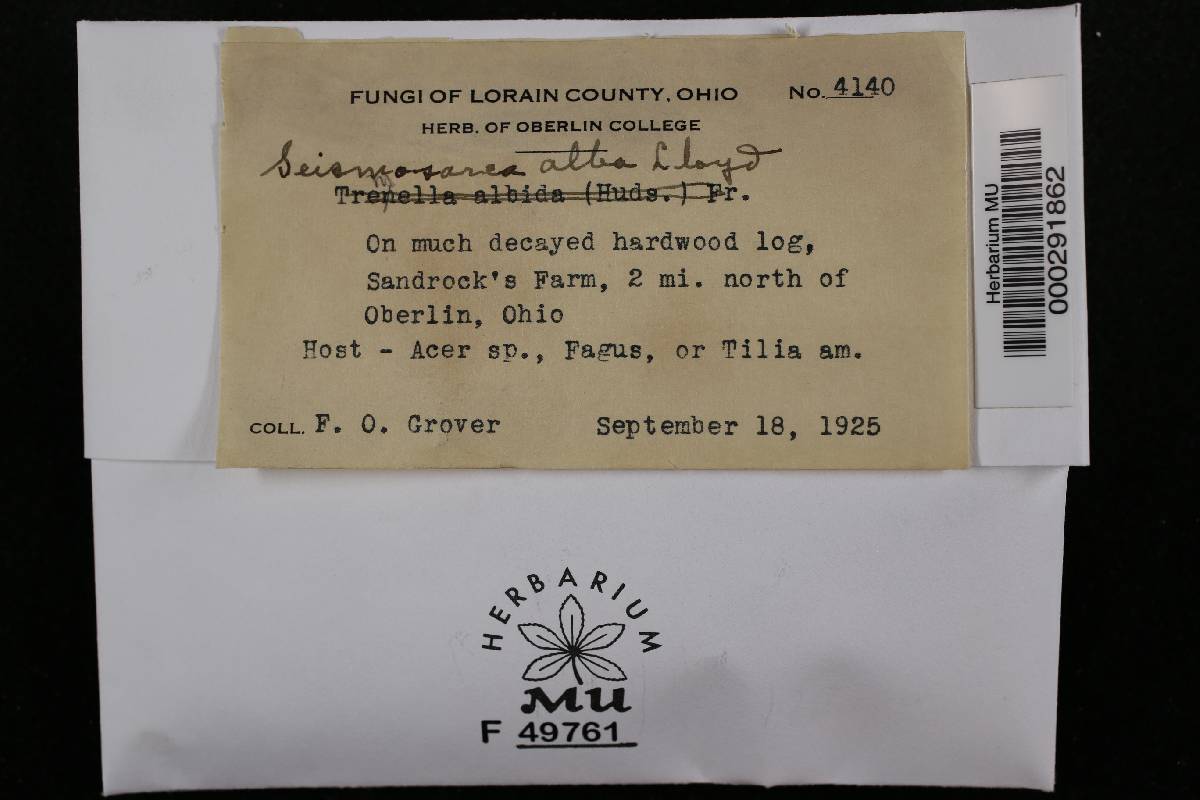 FUNGI OF LORAIN COUNTY, OHIO No. 4140
HERB. OF OBERLIN COLLEGE
Seismosarca alba Lloyd
Tremella albida (Huds.) Fr.
On much decayed hardwood log,
Sandrock's Farm, 2 mi. north of
Oberlin, Ohio
Host - Acer sp., Fagus, or Tilia am.
COLL. F. O. Grover September 18, 1925
Herbarium MU
000291862
HERBARIUM
MU
F 49761